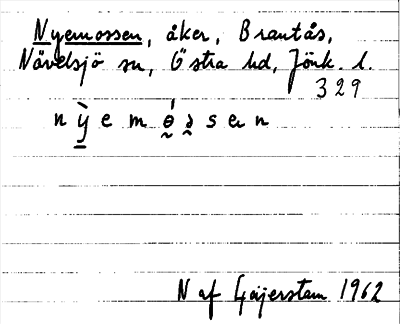 Nyemossen, åker, Brantås,
Nävelsjö sn, Östra hd, Jönk. l.
329
N af Geijerstam 1962